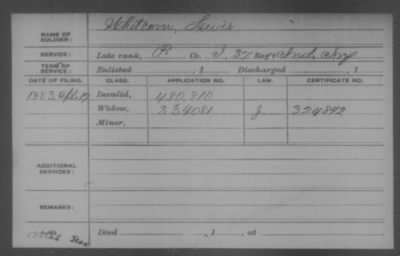 NAME OF SOLDIER: Whitcom, Lewis
SERVICE: Late rank, P Co. I, 37 Reg't Ind. Inf
TERM OF SERVICE: Enlisted , 1 Discharged , 1
DATE OF FILING. CLASS. APPLICATION NO. LAW. CERTIFICATE NO.
1883 Invalid, 480,810
Widow, 334081 J 324842
Minor,
ADDITIONAL SERVICES:
REMARKS:
Died , 1 , at